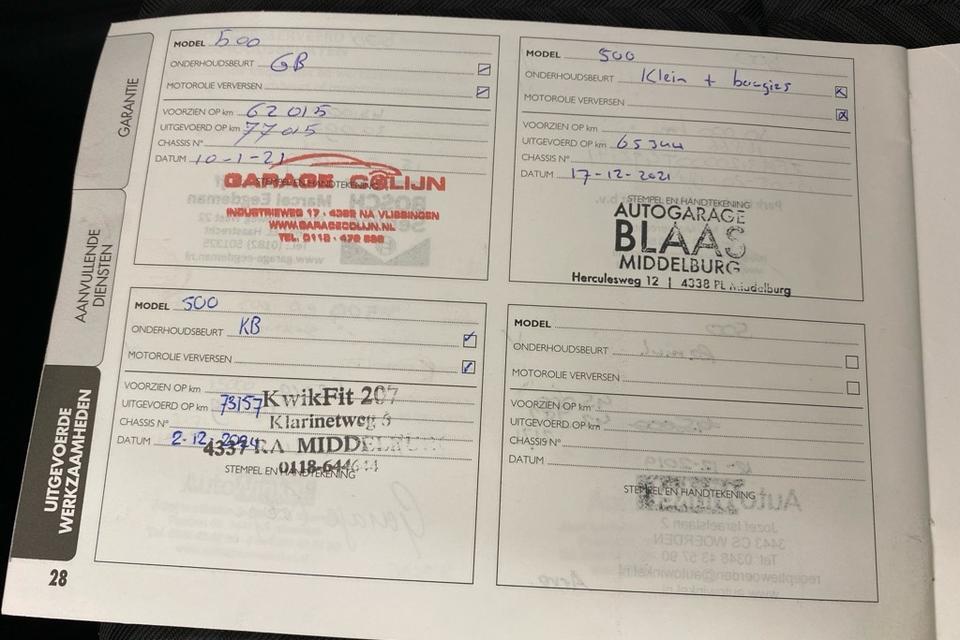 GARANTIE
AANVULLENDE
DIENSTEN
UITGEVOERDE
WERKZAAMHEDEN
28
MODEL 500
ONDERHOUDSBEURT GB
MOTOROLIE VERVERSEN
VOORZIEN OP km 62015
UITGEVOERD OP km 77015
CHASSIS N°
DATUM 10-1-21
STEMPEL EN HANDTEKENING
GARAGE COLIJN
INDUSTRIEWEG 17 - 4382 NA VLISSINGEN
WWW.GARAGECOLIJN.NL
TEL. 0118 - 479 588
MODEL 500
ONDERHOUDSBEURT Klein + bougies
MOTOROLIE VERVERSEN
VOORZIEN OP km
UITGEVOERD OP km 65344
CHASSIS N°
DATUM 17-12-2021
STEMPEL EN HANDTEKENING
AUTOGARAGE
BLAAS
MIDDELBURG
Herculesweg 12 | 4338 PL Middelburg
MODEL 500
ONDERHOUDSBEURT KB
MOTOROLIE VERVERSEN
VOORZIEN OP km
UITGEVOERD OP km 73157
CHASSIS N°
DATUM 2-12-2024
KwikFit 207
Klarinetweg
4337 RA MIDDELBURG
0118-644644
STEMPEL EN HANDTEKENING
MODEL
ONDERHOUDSBEURT
MOTOROLIE VERVERSEN
VOORZIEN OP km
UITGEVOERD OP km
CHASSIS N°
DATUM
STEMPEL EN HANDTEKENING